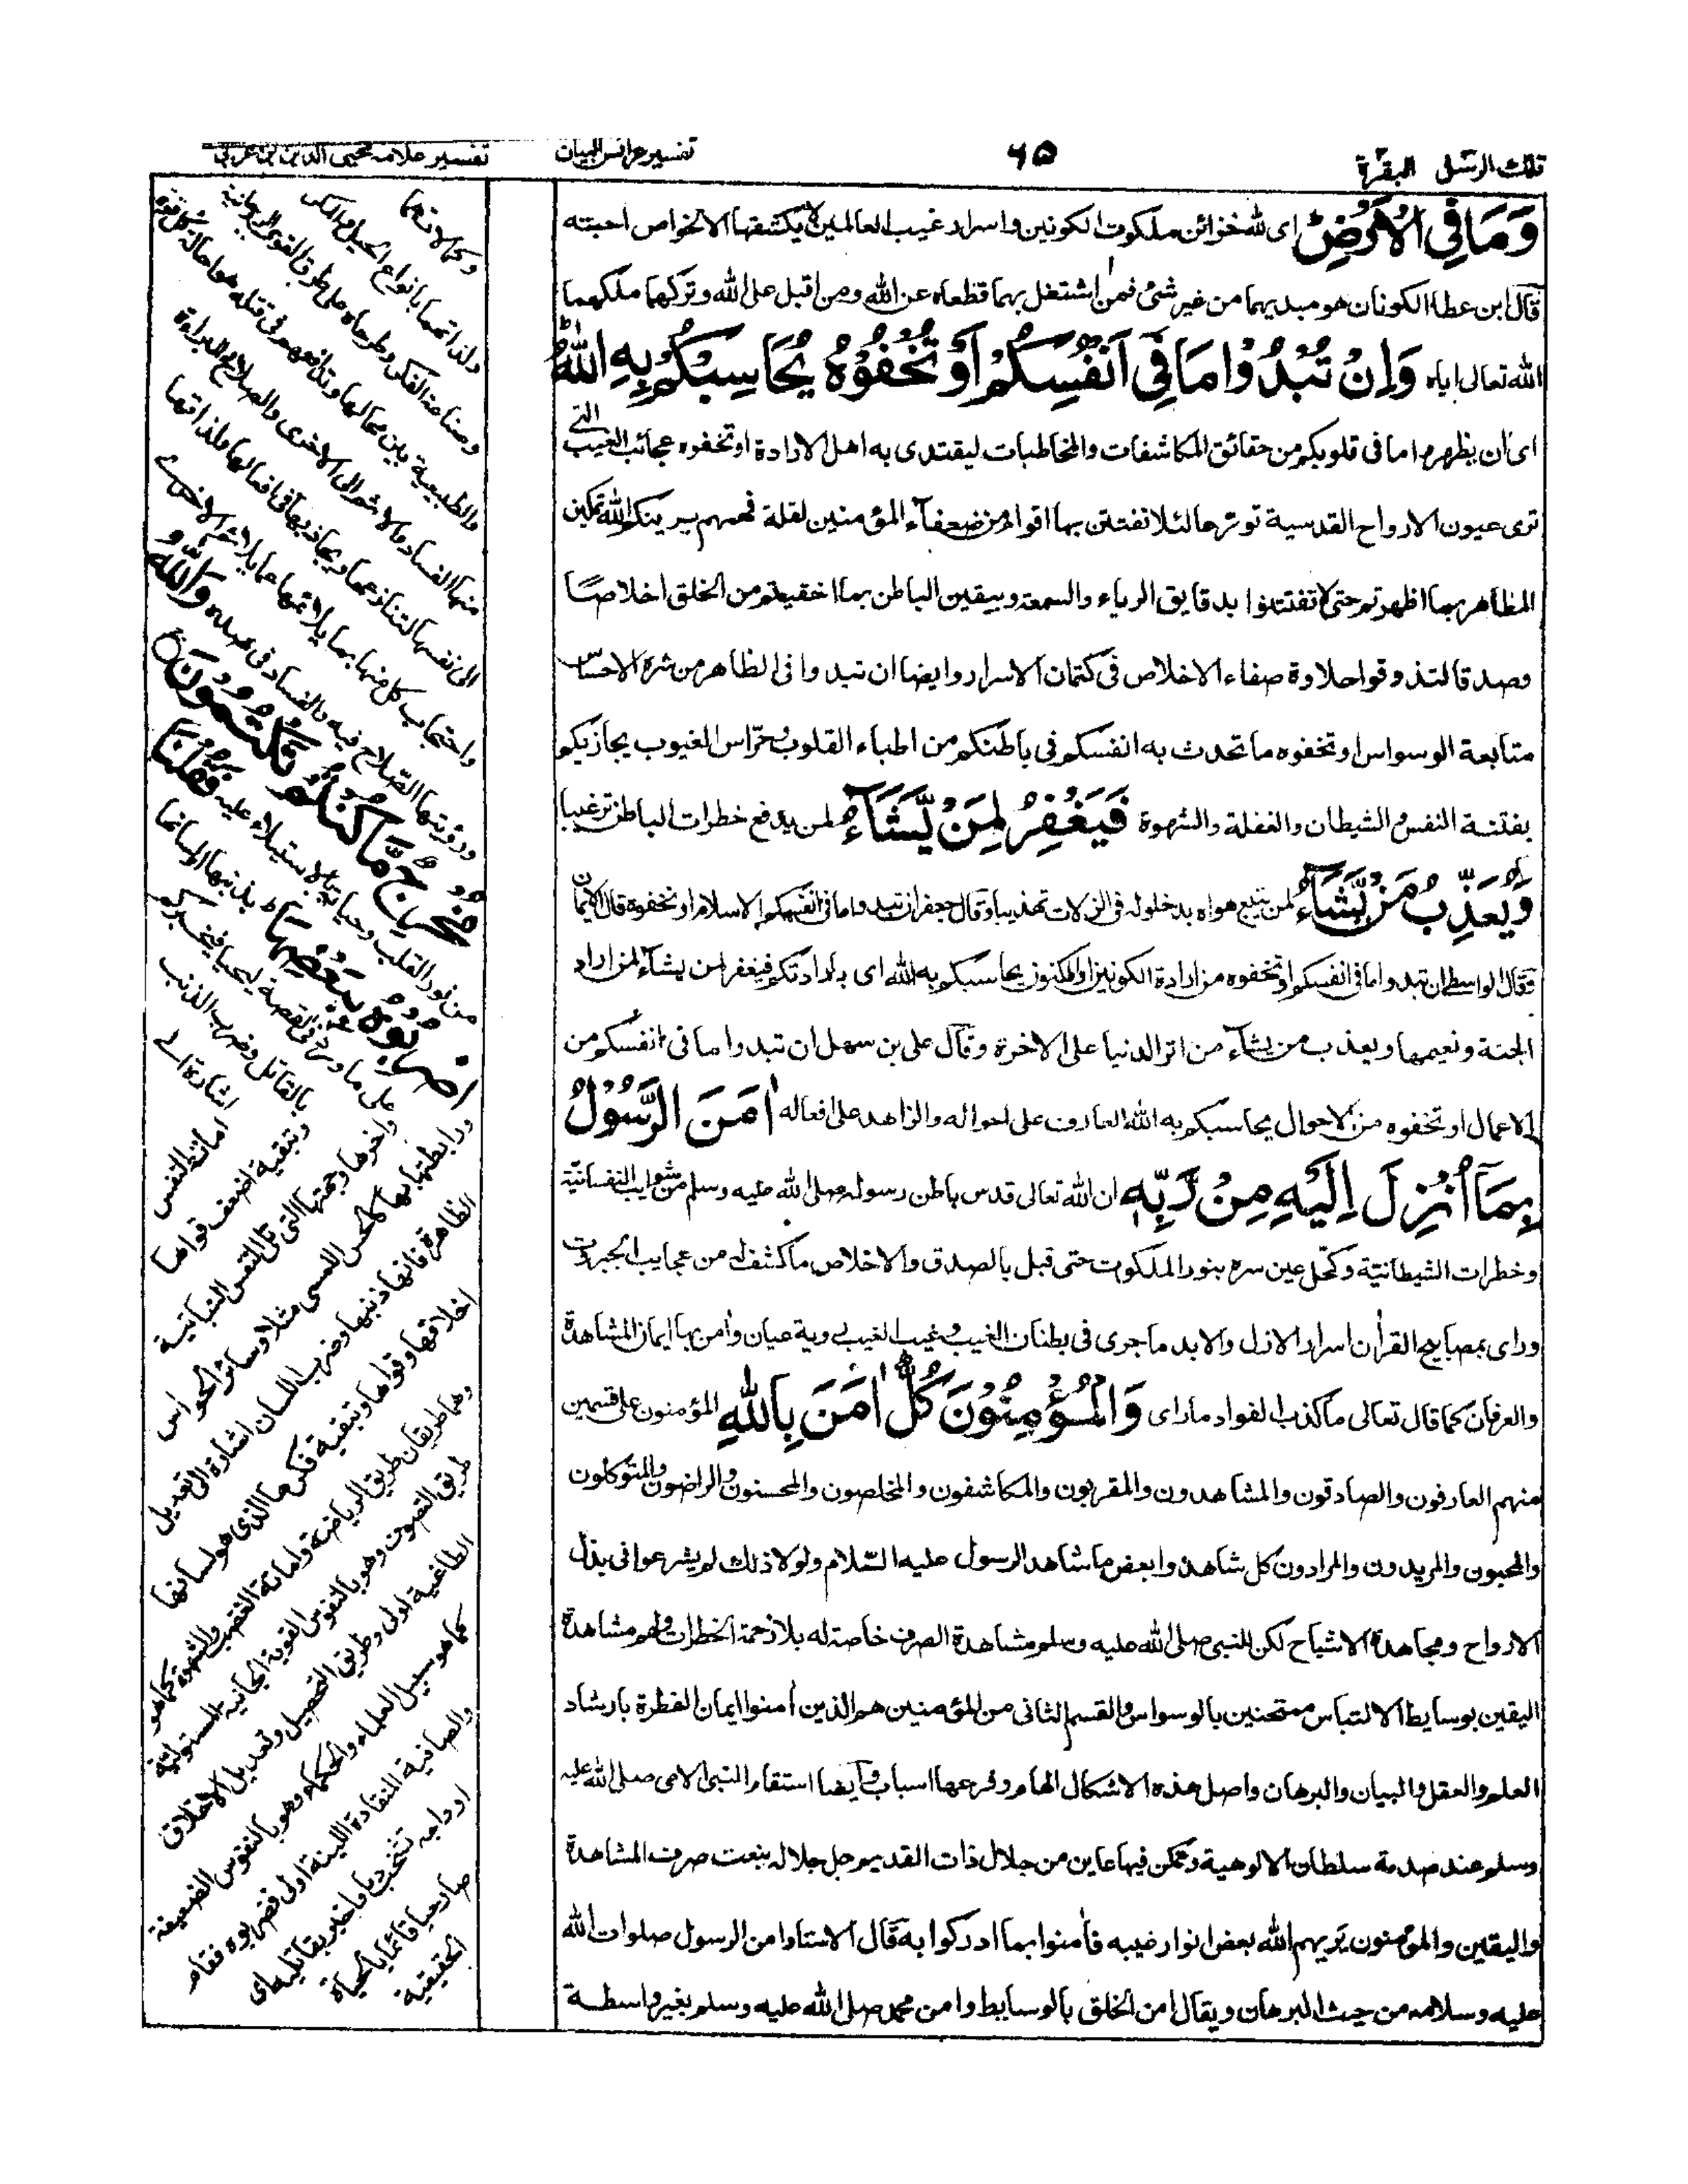 تلك الرسل البقرة
٦٥
تفسير عرائس البيان
تفسير علامه محيى الدين بن عربى
وَمَا فِي الْاَرْضِ اى لله خزائن ملكوت الكونين واسرار غيب العالمين لا يكشفها الا لخواص احبته
قال ابن عطا الكونان هو مبديهما من غير شئ فمن اشتغل بهما قطعاه عن الله ومن اقبل على الله وتركهما ملكهما
الله تعالى اياه وَاِنْ تُبْدُوْا مَا فِيْ اَنْفُسِكُمْ اَوْ تُخْفُوْهُ يُحَاسِبْكُمْ بِهِ اللهُ
اى ان يظهروا ما فى قلوبكم من حقائق المكاشفات والمخاطبات ليقتدى به اهل الارادة او تخفوه عجائب الغيب التى
ترى عيون الارواح القدسية توثرها لئلا تفتتن بها اقوام من ضعفاء المؤمنين لقلة فهمهم يرينكم الله تمكين
الظاهر بما اظهرتم حتى لا تفتتنوا بدقايق الرياء والسمعة وبيقين الباطن بما اخفيتم من الخلق اخلاصًا
وصدقا لتذوقوا حلاوة صفاء الاخلاص فى كتمان الاسرار وايضا ان تبدوا فى الظاهر من شره الاحساس
متابعة الوسواس او تخفوه ما تحدث به انفسكم فى باطنكم من اطباء القلوب وحرّاس الغيوب يجازيكم
بفتنة النفس والشيطان والغفلة والشهوة فَيَغْفِرُ لِمَنْ يَّشَآءُ لمن يدفع خطرات الباطن ترغيبا
وَيُعَذِّبُ مَنْ يَّشَآءُ لمن يتبع هواه بدخلوله فى الزلات تهذيبا وقال جعفر ان تبدوا ما فى انفسكم الاسلام او تخفوه قال الايمان
وقال الواسطى ان تبدوا ما فى انفسكم او تخفوه من ارادة الكونين او المكنون يحاسبكم به الله اى بارادتكم فيغفر لمن يشاء لمن اراد
الجنة ونعيمها ويعذب من يشاء من اثر الدنيا على الاخرة وقال على بن سهل ان تبدوا ما فى انفسكم من
الاعمال او تخفوه من الاحوال يحاسبكم به الله العارف على احواله والزاهد على افعاله اٰمَنَ الرَّسُوْلُ
بِمَآ اُنْزِلَ اِلَيْهِ مِنْ رَّبِّهٖ ان الله تعالى قدس باطن رسوله صلى الله عليه وسلم من شوايب النفسانية
وخطرات الشيطانيّة وكحّل عين سره بنور الملكوت حتى قبل بالصدق والاخلاص ما كشف له من عجايب الجبروت
وراى بمصابيح القراٰن اسرار الازل والابد ما جرى فى بطنان الغيب وغيب الغيب روية عيان واٰمن بها ايمان المشاهدة
والعرفان كما قال تعالى ما كذب الفواد ما راى وَالْمُؤْمِنُوْنَ كُلٌّ اٰمَنَ بِاللهِ المؤمنون على قسمين
منهم العارفون والصادقون والمشاهدون والمقربون والمكاشفون والمخلصون والمحسنون والراضون والمتوكلون
والمحبون والمريدون والمرادون كل شاهدوا بعض ما شاهد الرسول عليه السّلام ولولا ذلك لم يشرعوا فى بذل
الارواح ومجاهدة الاشباح لكن للنبى صلى الله عليه وسلم مشاهدة الصرف خاصة له بلا زحمة الخطرات ولهم مشاهدة
اليقين بوسايط الالتباس ممتحنين بالوسواس والقسم الثانى من المؤمنين هم الذين اٰمنوا ايمان الفطرة بارشاد
العلم والعقل والبيان والبرهان واصل هذه الاشكال الهام وفرعها اسباب وايضا استقام النبى الامى صلى الله عليه
وسلم عند صدمة سلطان الالوهية وتمكن فيها عاين من جلال ذات القديم جل جلاله بنعت صرف المشاهدة
واليقين والمؤمنون يريهم الله بعض انوار غيبه فاٰمنوا بما ادركوا به قال الاستاد امن الرسول صلوات الله
عليه وسلامه من حيث البرهان ويقال امن الخلق بالوسايط وامن محمد صلى الله عليه وسلم بغير واسطة
وكمالاتها
ولذاتها بانواع الحيل والمكر
وصناعة الفكر وطرحاه على طرق القوى الروحانية
والطبيعية بين محالها
منها الفساد والاثم الى الاخرى والصلاح والبراءة
الى نفسها لتنازعها وتجاذبها فى افعالها ولذاتها
واحتجاب كل منها بما يلائمها عما يلائم الاخرى
ورؤيتها الصّلاح فيه والفساد فى ضده وَاللّٰهُ
مُخْرِجٌ مَّا كُنْتُمْ تَكْتُمُوْنَ
من نور القلب وحياته بالاستيلاء عليه فَقُلْنَا
اضْرِبُوْهُ بِبَعْضِهَا بذنبها او لسانها
على ما ورد فى القصة ليحيا فيخبركم
بالقاتل وضرب الذنب
اشارة الى
اماتة النفس
وتبقية اضعف قواها
واٰخرها وجهتها التى تلى النفس النباتية
ورابطتها بها كالحس اللمسى مثلا وسائر الحواس
الظاهرة فانها ذنبها وضرب اللسان اشارة الى تعديل
اخلاقها وقواها وتبقية فكرها الذى هو لسانها
وهما طريقان طريق الرياضة واماتة الغضب والشهوة كما هو
طريق التصوف وهو بالنفوس القوية الجانية المستولية
الطاغية اولى وطريق التحصيل وتعديل الاخلاق
كما هو سبيل العلماء والحكماء وهو بالنفوس الضعيفة
والصافية المنقادة اللينة اولى فضربوه فقام
اوداجه تشخب دما واخبر بقاتليه اى
صار حيا قائما بالحياة
الحقيقية